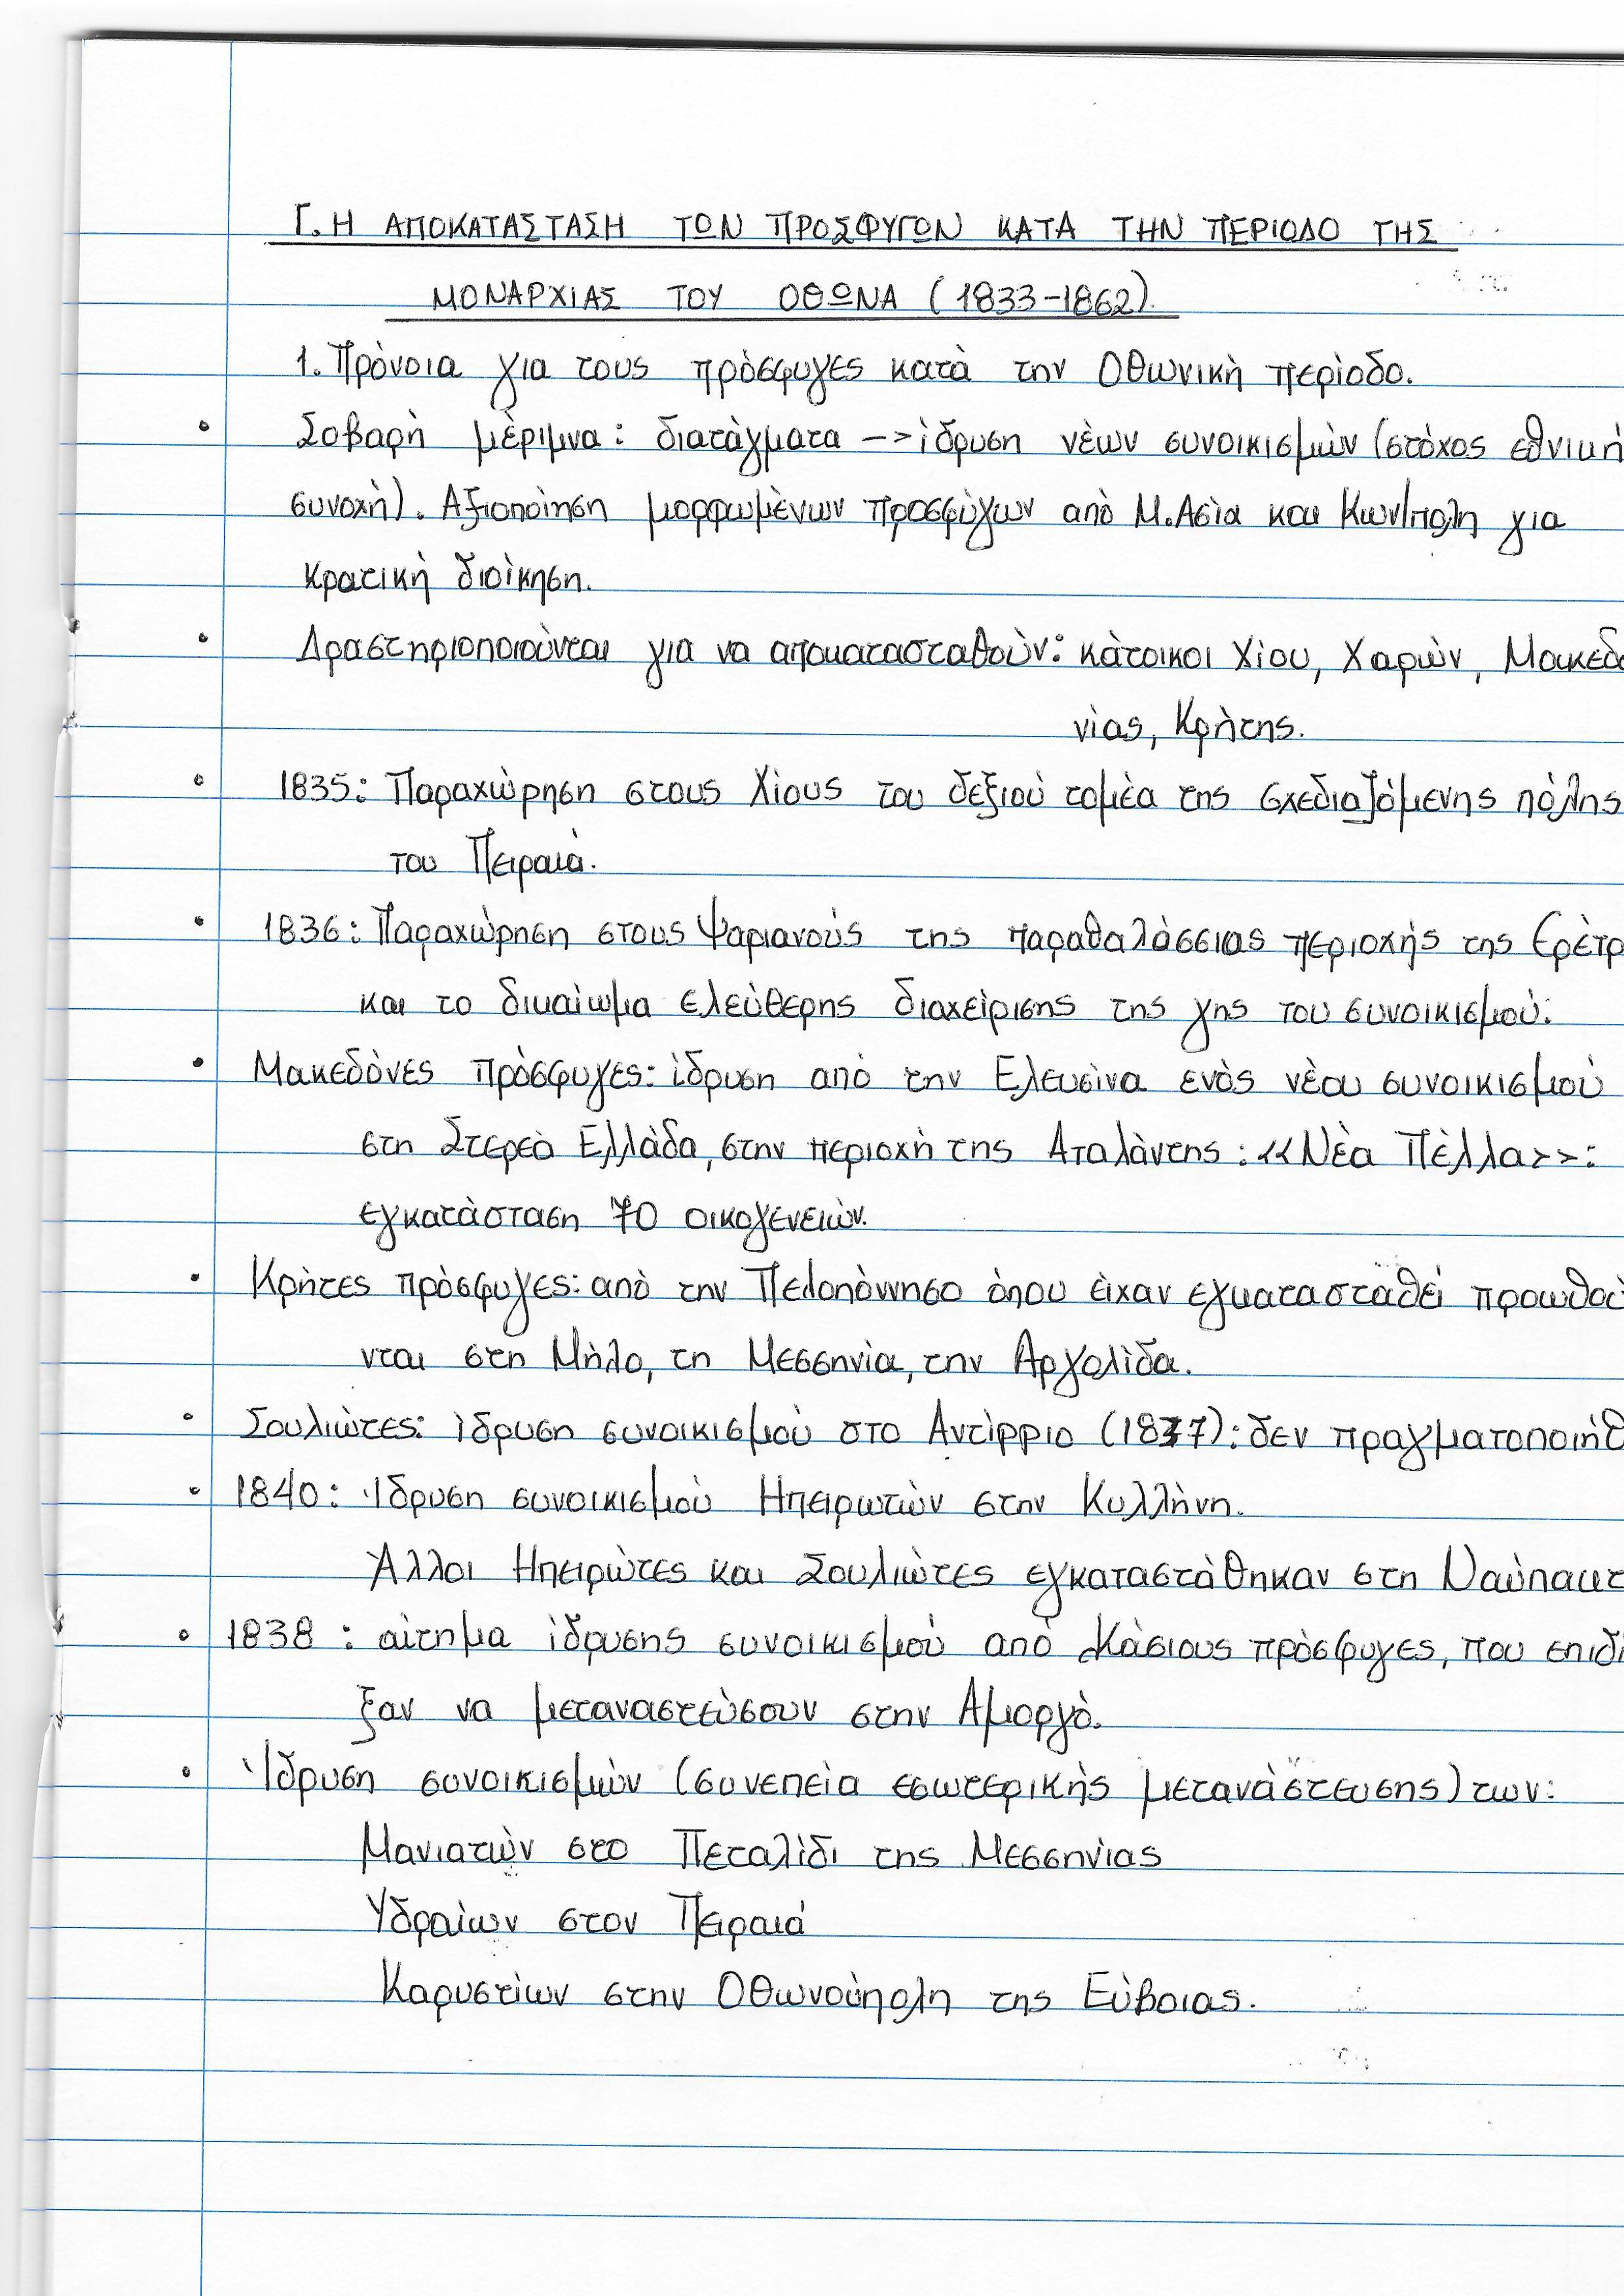 Γ. Η ΑΠΟΚΑΤΑΣΤΑΣΗ ΤΩΝ ΠΡΟΣΦΥΓΩΝ ΚΑΤΑ ΤΗΝ ΠΕΡΙΟΔΟ ΤΗΣ
ΜΟΝΑΡΧΙΑΣ ΤΟΥ ΟΘΩΝΑ (1833-1862)
1. Πρόνοια για τους πρόσφυγες κατά την Οθωνική περίοδο.
• Σοβαρή μέριμνα: διατάγματα -> ίδρυση νέων συνοικισμών (στόχος εθνική
συνοχή). Αξιοποίηση μορφωμένων προσφύγων από Μ.Ασία και Κων/πολη για
κρατική διοίκηση.
• Δραστηριοποιούνται για να αποκατασταθούν: κάτοικοι Χίου, Χαρών, Μακεδο
νίας, Κρήτης.
• 1835: Παραχώρηση στους Χίους του δεξιού τομέα της σχεδιαζόμενης πόλης
του Πειραιά.
• 1836: Παραχώρηση στους Ψαριανούς της παραθαλάσσιας περιοχής της Ερέτρ
και το δικαίωμα ελεύθερης διαχείρισης της γης του συνοικισμού.
• Μακεδόνες πρόσφυγες: ίδρυση από την Ελευσίνα ενός νέου συνοικισμού
στη Στερεά Ελλάδα, στην περιοχή της Αταλάντης: <<Νέα Πέλλα>>:
εγκατάσταση 70 οικογενειών.
• Κρήτες πρόσφυγες: από την Πελοπόννησο όπου είχαν εγκατασταθεί προωθού
νται στη Μήλο, τη Μεσσηνία, την Αργολίδα.
• Σουλιώτες: ίδρυση συνοικισμού στο Αντίρριο (1837): δεν πραγματοποιήθ
• 1840: Ίδρυση συνοικισμού Ηπειρωτών στην Κυλλήνη.
Άλλοι Ηπειρώτες και Σουλιώτες εγκαταστάθηκαν στη Ναύπακτ
• 1838: αίτημα ίδρυσης συνοικισμού από Κάσιους πρόσφυγες, που επιδί
ξαν να μεταναστεύσουν στην Αμοργό.
• Ίδρυση συνοικισμών (συνεπεία εσωτερικής μετανάστευσης) των:
Μανιατών στο Πεταλίδι της Μεσσηνίας
Υδραίων στον Πειραιά
Καρυστίων στην Οθωνούπολη της Εύβοιας.